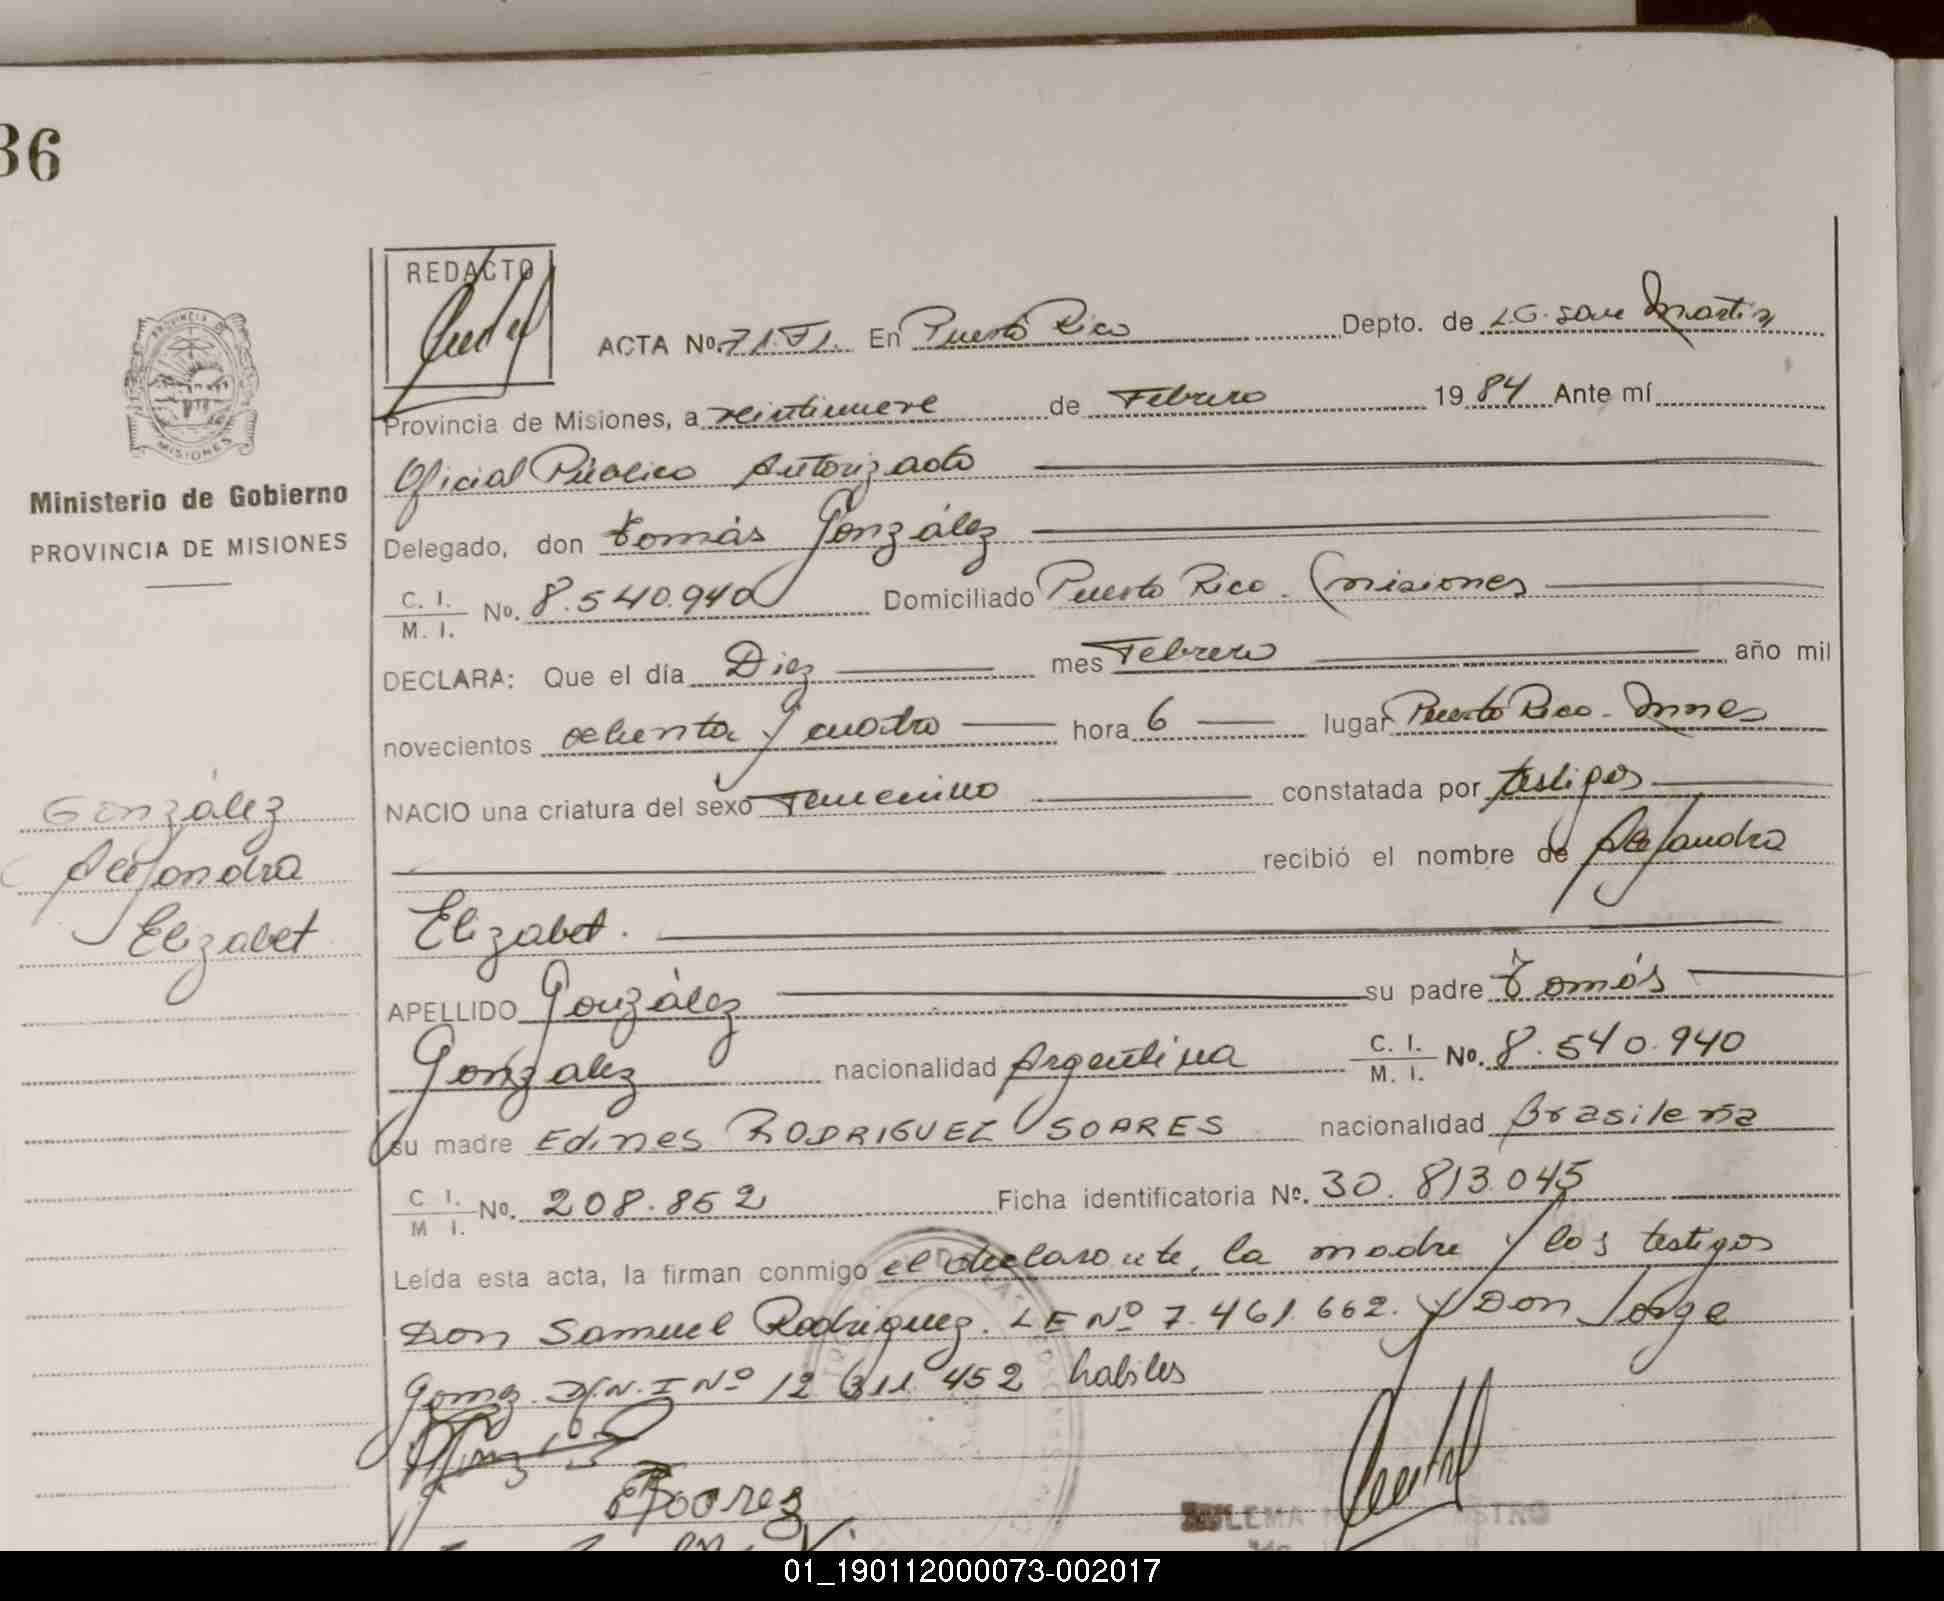 36
REDACTO
ACTA No. 71.TI. En Puerto Rico Depto. de L.G. San Martin
Provincia de Misiones, a veintinueve de Febrero 1984 Ante mí
PROVINCIA DE
MISIONES
Oficial Público Autorizado
Ministerio de Gobierno
PROVINCIA DE MISIONES
Delegado, don Tomás González
C. I.
M. I. No. 8.540.940 Domiciliado Puerto Rico. (Misiones
DECLARA: Que el día Diez mes Febrero año mil
novecientos ochenta y cuatro hora 6 lugar Puerto Rico - Mnes
NACIO una criatura del sexo Femenino constatada por testigos
González
Alejandra
Elizabet
recibió el nombre de Alejandra
Elizabet.
APELLIDO González su padre Tomás
González nacionalidad Argentina C. I. M. I. No. 8.540.940
su madre Edines RODRIGUEZ SOARES nacionalidad Brasileña
C I.
M I. No. 208.852 Ficha identificatoria No. 30.813.045
Leída esta acta, la firman conmigo el declarante, la madre y los testigos
Don Samuel Rodriguez. LE Nº 7.461.662. y Don Jorge
Gomz. D.N.I Nº 12 311 452 habiles
01_190112000073-002017